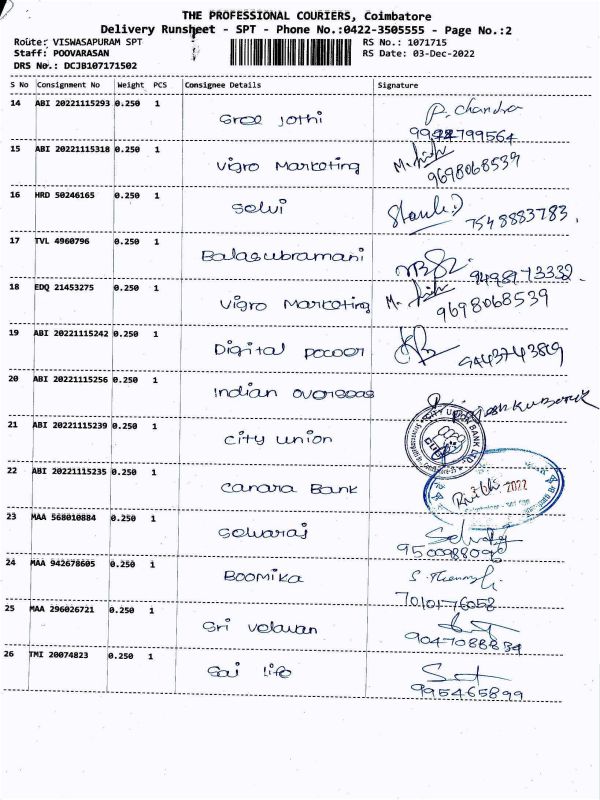 THE PROFESSIONAL COURIERS, Coimbatore
Delivery Runsheet - SPT - Phone No.:0422-3505555 - Page No.:2
Route: VISWASAPURAM SPT RS No.: 1071715
Staff: POOVARASAN RS Date: 03-Dec-2022
DRS No.: DCJB107171502
S No Consignment No Weight PCS Consignee Details Signature
14 ABI 20221115293 0.250 1 Sree Jothi P. Chandra
9994799564
15 ABI 20221115318 0.250 1 Vigro Marketing M.
9698068539
16 HRD 50246165 0.250 1 Selvi
7548883783.
17 TVL 4960796 0.250 1 Balasubramani
9498173332
18 EDQ 21453275 0.250 1 Vigro Marketing M.
9698068539
19 ABI 20221115242 0.250 1 Digital pocoor
9443743869
20 ABI 20221115256 0.250 1 Indian overseas
21 ABI 20221115239 0.250 1 city union
CITY UNION BANK LTD
22 ABI 20221115235 0.250 1 canara Bank
2022
23 MAA 568010884 0.250 1 Selvaraj Selvaraj
9500988090
24 MAA 942678605 0.250 1 BOOMIKA
7010176058
25 MAA 296026721 0.250 1 Sri velavan
9047088834
26 TMI 20074823 0.250 1 Sai life
995465899